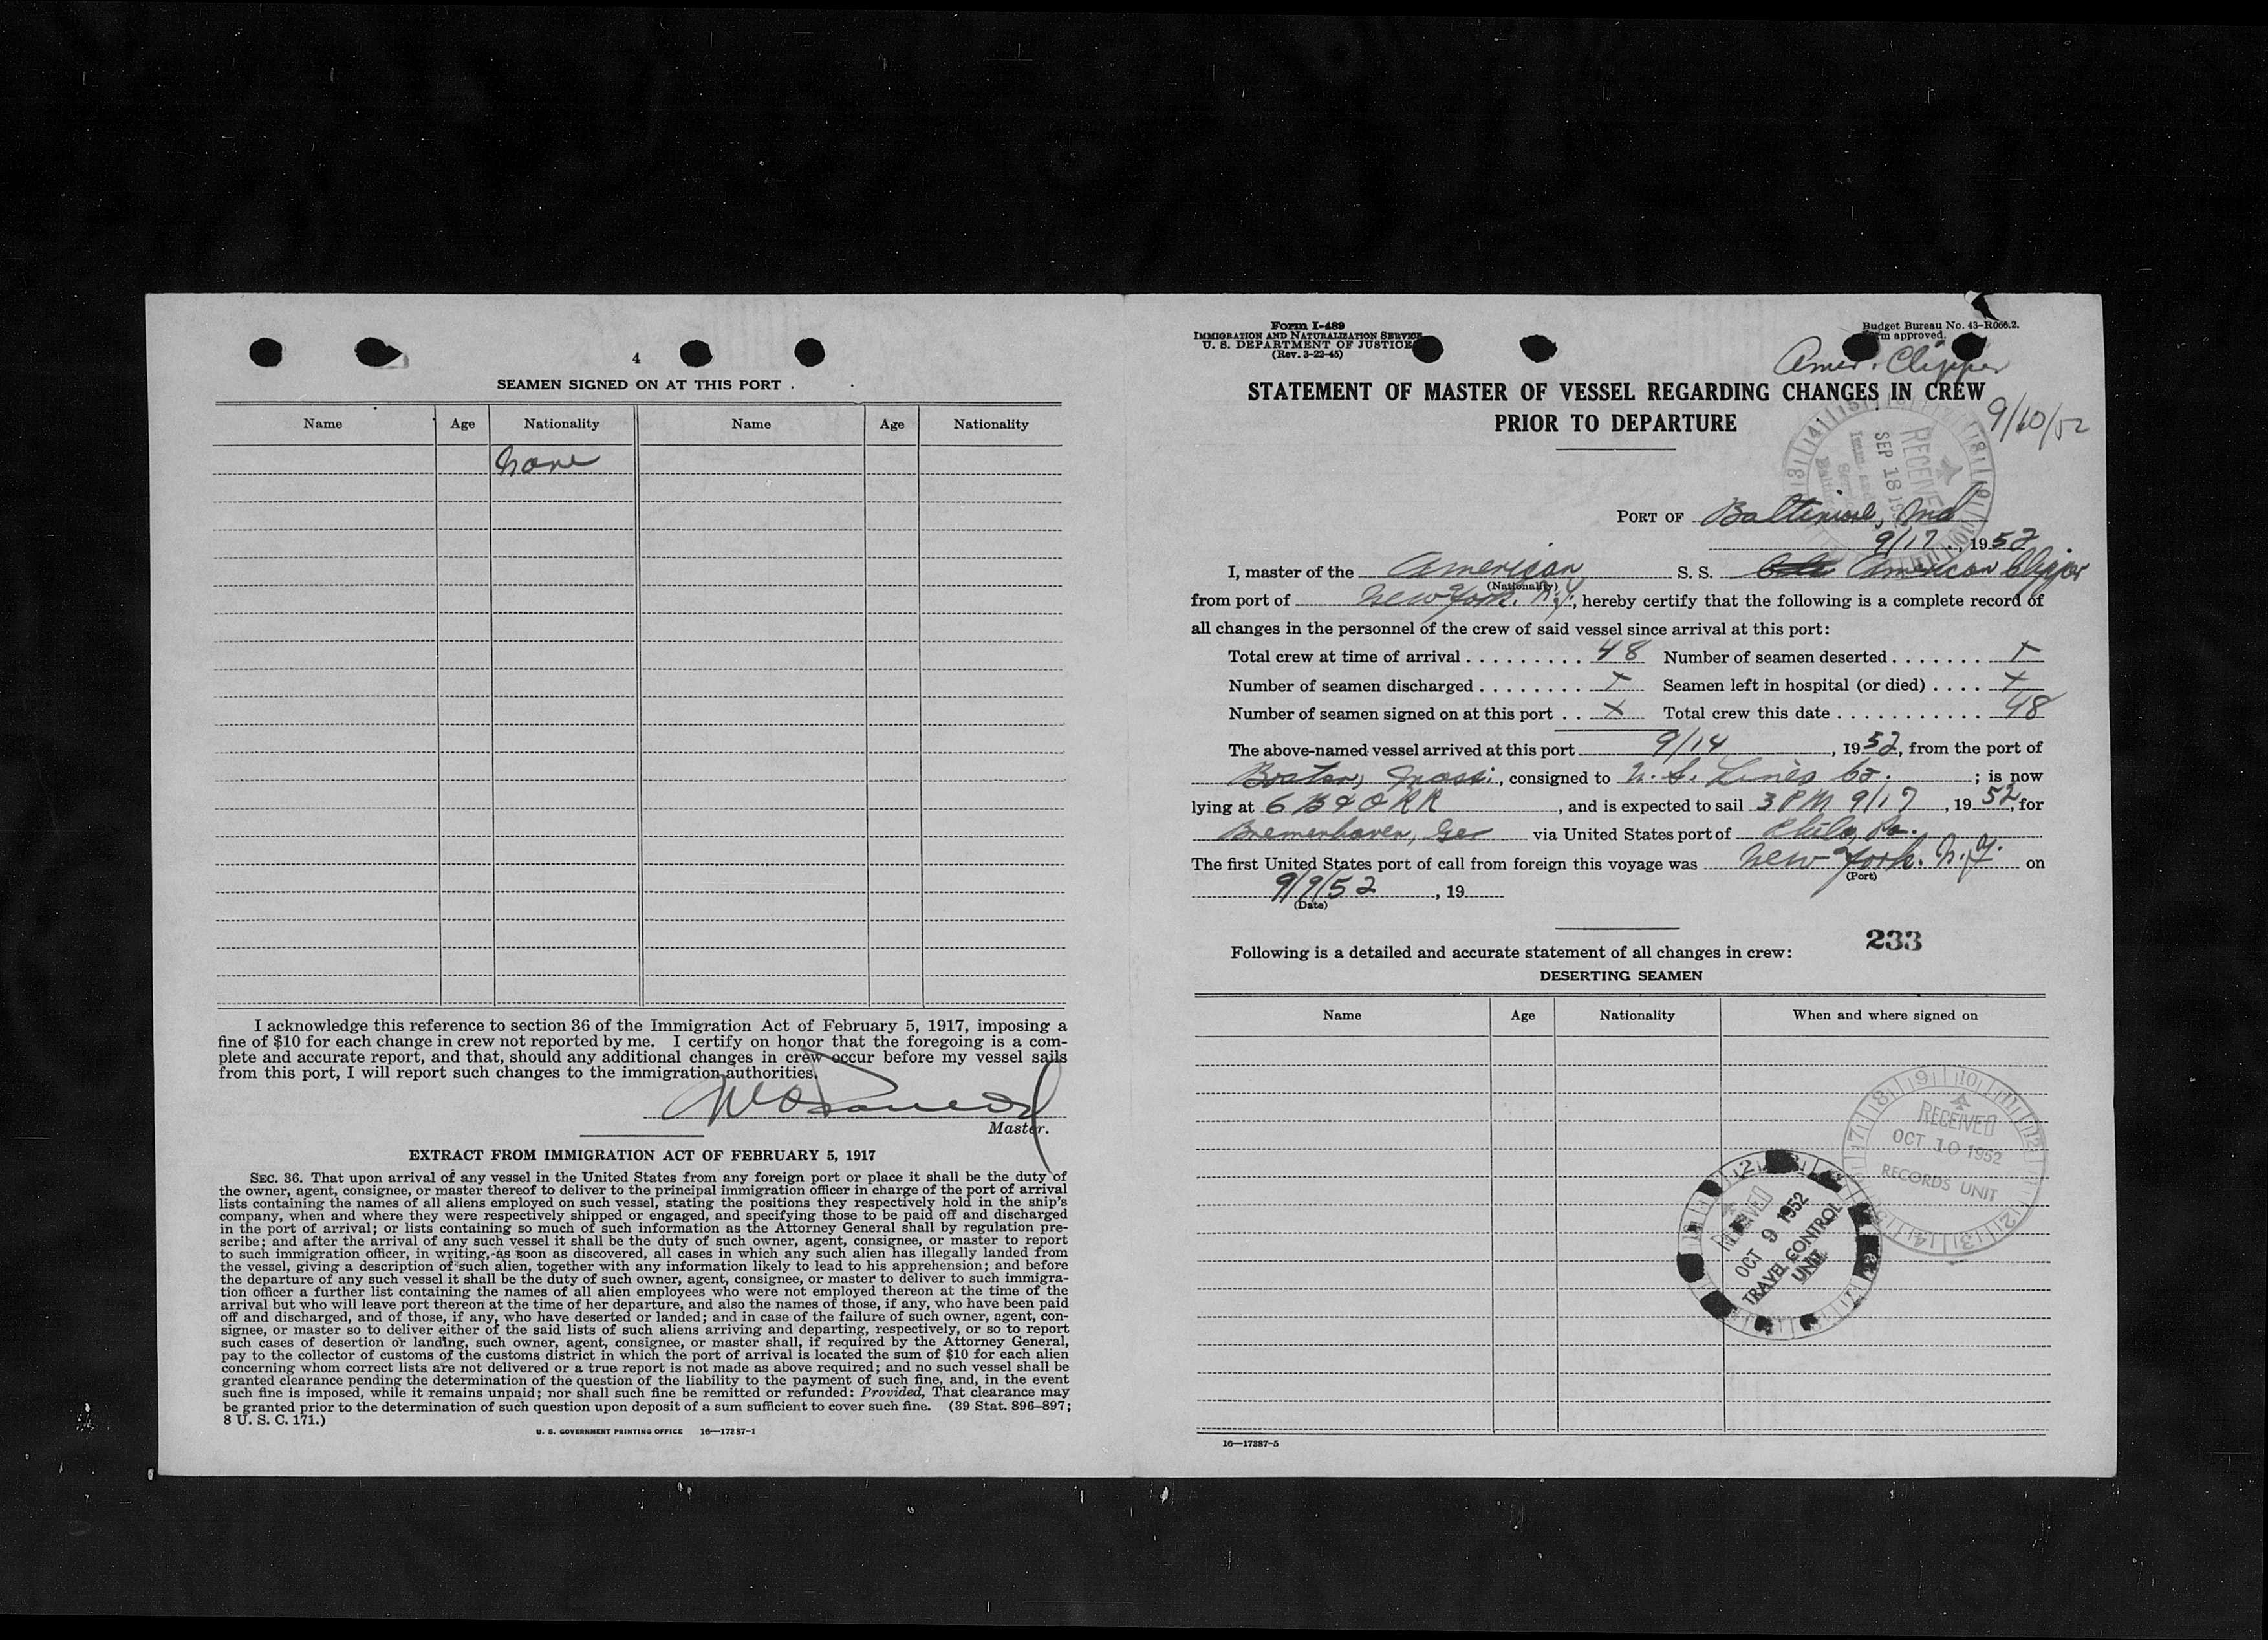 4
SEAMEN SIGNED ON AT THIS PORT
Name Age Nationality Name Age Nationality
None
I acknowledge this reference to section 36 of the Immigration Act of February 5, 1917, imposing a
fine of $10 for each change in crew not reported by me. I certify on honor that the foregoing is a com-
plete and accurate report, and that, should any additional changes in crew occur before my vessel sails
from this port, I will report such changes to the immigration authorities.
Master.
EXTRACT FROM IMMIGRATION ACT OF FEBRUARY 5, 1917
SEC. 36. That upon arrival of any vessel in the United States from any foreign port or place it shall be the duty of
the owner, agent, consignee, or master thereof to deliver to the principal immigration officer in charge of the port of arrival
lists containing the names of all aliens employed on such vessel, stating the positions they respectively hold in the ship's
company, when and where they were respectively shipped or engaged, and specifying those to be paid off and discharged
in the port of arrival; or lists containing so much of such information as the Attorney General shall by regulation pre-
scribe; and after the arrival of any such vessel it shall be the duty of such owner, agent, consignee, or master to report
to such immigration officer, in writing, as soon as discovered, all cases in which any such alien has illegally landed from
the vessel, giving a description of such alien, together with any information likely to lead to his apprehension; and before
the departure of any such vessel it shall be the duty of such owner, agent, consignee, or master to deliver to such immigra-
tion officer a further list containing the names of all alien employees who were not employed thereon at the time of the
arrival but who will leave port thereon at the time of her departure, and also the names of those, if any, who have been paid
off and discharged, and of those, if any, who have deserted or landed; and in case of the failure of such owner, agent, con-
signee, or master so to deliver either of the said lists of such aliens arriving and departing, respectively, or so to report
such cases of desertion or landing, such owner, agent, consignee, or master shall, if required by the Attorney General,
pay to the collector of customs of the customs district in which the port of arrival is located the sum of $10 for each alien
concerning whom correct lists are not delivered or a true report is not made as above required; and no such vessel shall be
granted clearance pending the determination of the question of the liability to the payment of such fine, and, in the event
such fine is imposed, while it remains unpaid; nor shall such fine be remitted or refunded: Provided, That clearance may
be granted prior to the determination of such question upon deposit of a sum sufficient to cover such fine. (39 Stat. 896–897;
8 U. S. C. 171.)
U. S. GOVERNMENT PRINTING OFFICE 16—17387-1
Form I-489
IMMIGRATION AND NATURALIZATION SERVICE
U. S. DEPARTMENT OF JUSTICE
(Rev. 3-22-45)
Budget Bureau No. 43-R066.2.
approved.
Amer. Clipper
STATEMENT OF MASTER OF VESSEL REGARDING CHANGES IN CREW
PRIOR TO DEPARTURE
9/10/52
RECEIVED
SEP 18 1952
PORT OF Baltimore, Md
9/17, 1952
I, master of the American S. S. American Clipper
(Nationality)
from port of New York, N.Y., hereby certify that the following is a complete record of
all changes in the personnel of the crew of said vessel since arrival at this port:
Total crew at time of arrival 48 Number of seamen deserted x
Number of seamen discharged x Seamen left in hospital (or died) x
Number of seamen signed on at this port x Total crew this date 48
The above-named vessel arrived at this port 9/14, 1952, from the port of
Boston, Mass., consigned to U. S. Lines Co.; is now
lying at 6 B & O RR, and is expected to sail 3 PM 9/17, 1952, for
Bremenhaven, Ger via United States port of Phila, Pa.
The first United States port of call from foreign this voyage was New York, N.Y. on
(Port)
9/9/52, 19
(Date)
233
Following is a detailed and accurate statement of all changes in crew:
DESERTING SEAMEN
Name Age Nationality When and where signed on
RECEIVED
OCT 10 1952
RECORDS UNIT
RECEIVED
OCT 9 1952
TRAVEL CONTROL
UNIT
16—17387-5